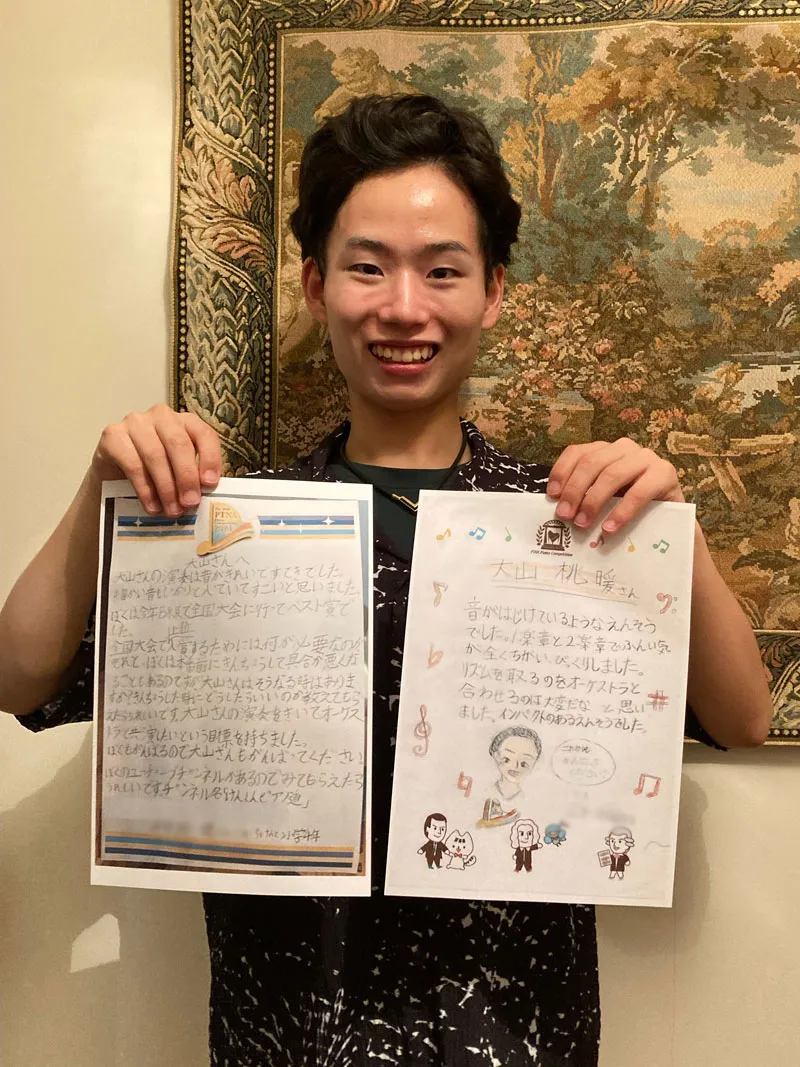 PTNA
大山さんへ
大山さんの演奏は音がきれいですてきでした。
細かい音もしっかりとんでいてすごいと思いました。
ぼくは今年B級で全国大会に行ってベスト賞で
した。
全国大会で入賞するためには何が必要なのか
それと、ぼくは本番前にきんちょうして具合が悪くな
ることもあるのですが大山さんはそうなる時はありま
すか?きんちょうした時にどうしたらいいのか教えてもら
えたらうれしいです。大山さんの演奏をきいてオーケス
トラと共演したいという目標を持ちました。
ぼくもがんばるので大山さんもがんばってください。
ぼくのユーチューブチャンネルがあるのでみてもらえたら
うれしいです。チャンネル名「けんしんピアノ道」
PTNA Piano Competition
大山 桃暖さん
音がはじけているようなえんそう
でした。1楽章と2楽章でふんい気
が全くちがい、びっくりしました。
リズムを取るのをオーケストラと
合わせるのは大変だな と思い
ました。インパクトのあるえんそうでした。
これからも
がんばって
ください